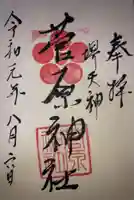 奉拝
堺天神
菅原神社
令和元年八月六日